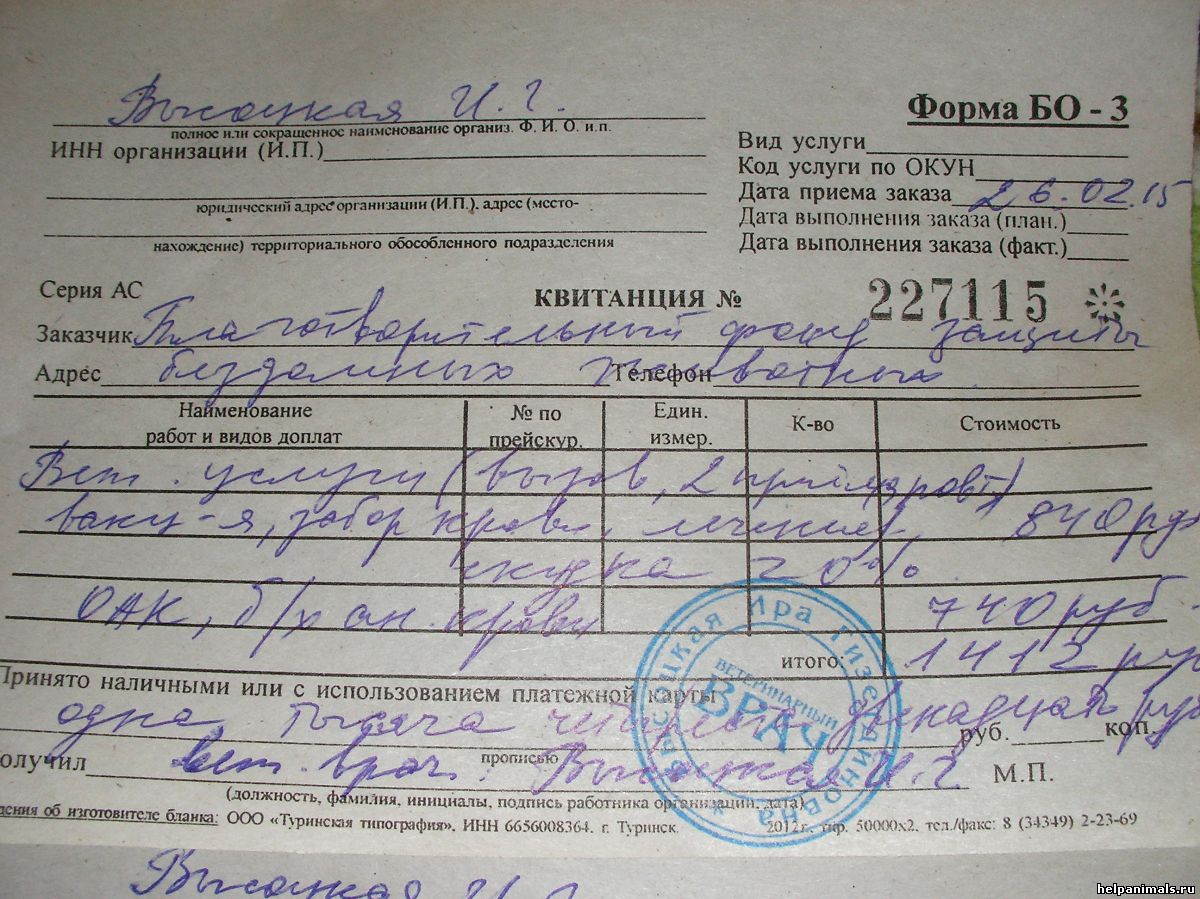 Высоцкая И. Г.
полное или сокращенное наименование организ. Ф. И. О. и.п.
ИНН организации (И.П.)
юридический адрес организации (И.П.), адрес (место-
нахождение) территориального обособленного подразделения
Форма БО - 3
Вид услуги
Код услуги по ОКУН
Дата приема заказа 26.02.15
Дата выполнения заказа (план.)
Дата выполнения заказа (факт.)
Серия АС
КВИТАНЦИЯ № 227115
Заказчик Благотворительный фонд защиты
Адрес бездомных животных Телефон
Наименование работ и видов доплат
№ по прейскур.
Един. измер.
К-во
Стоимость
Вет. услуги (вызов, 2
вакц-я, забор крови, лечение), 840 руб
скидка 20%.
ОАК, б/х ан. крови 740 руб
итого: 1412 руб
Принято наличными или с использованием платежной карты
одна тысяча четыреста двенадцать руб руб. коп.
прописью
олучил вет. врач Высоцкая И. Г. М.П.
(должность, фамилия, инициалы, подпись работника организации, дата)
дения об изготовителе бланка: ООО «Туринская типография», ИНН 6656008364. г. Туринск. 2012г., тир. 50000х2, тел./факс: 8 (34349) 2-23-69
Высоцкая Ира Гизезвиновна
ВЕТЕРИНАРНЫЙ
ВРАЧ
Высоцкая И. Г.
helpanimals.ru